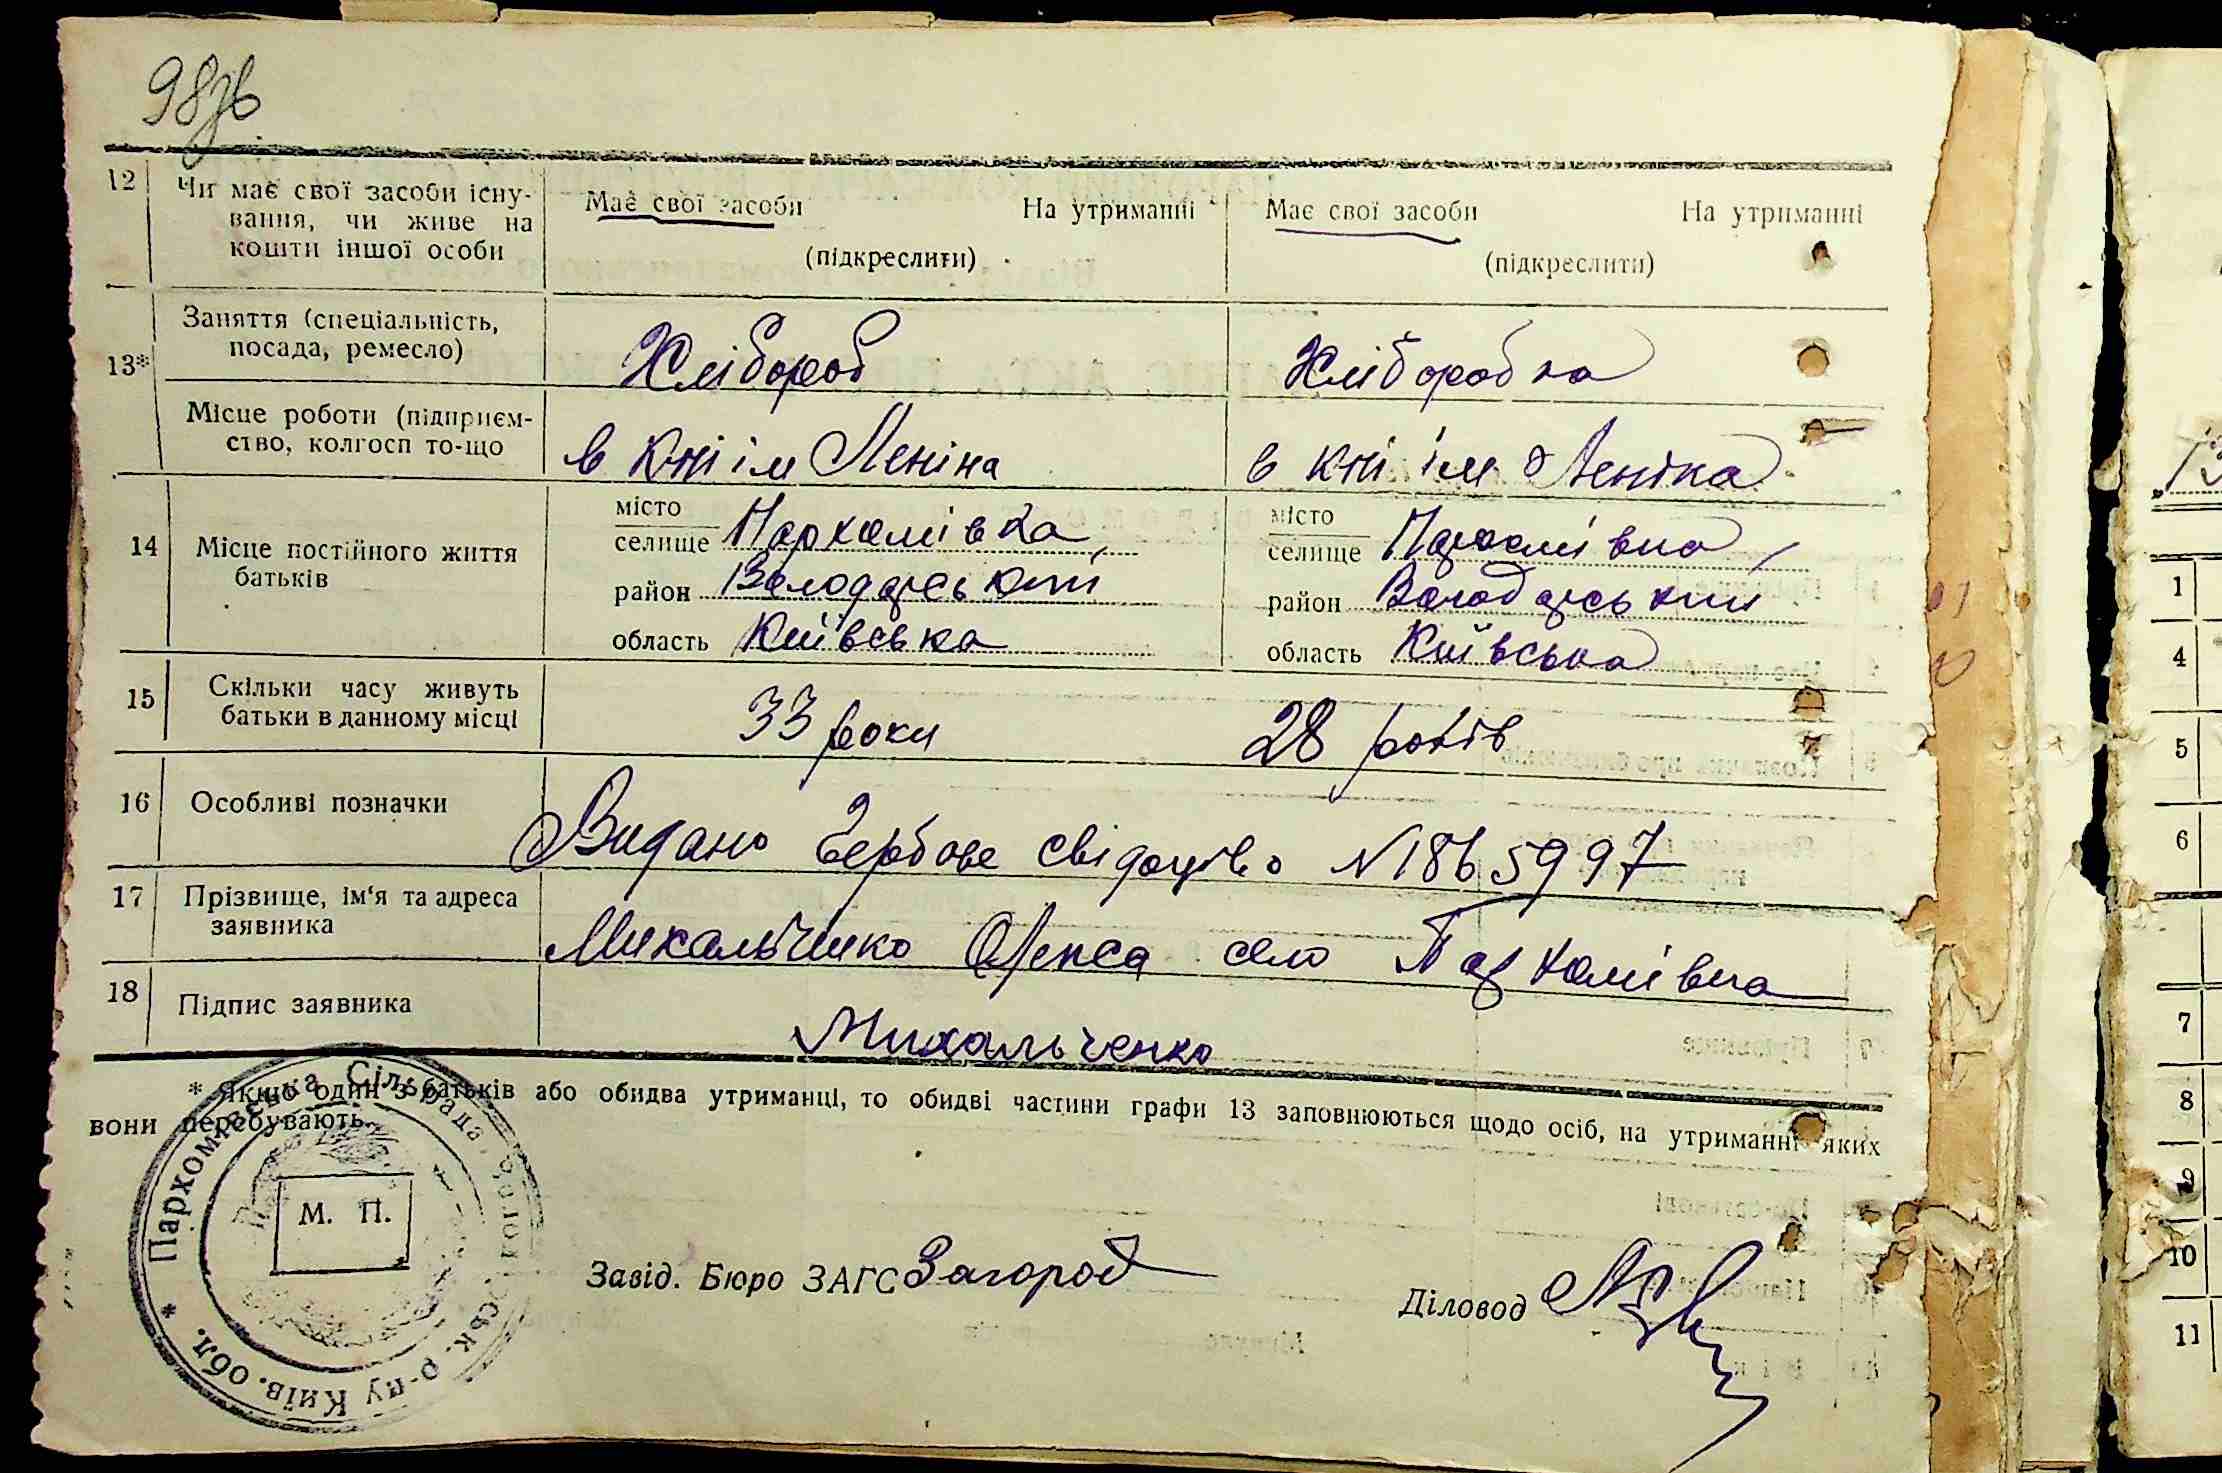 98зв
12 Чи має свої засоби існу-
вання, чи живе на
кошти іншої особи
Має свої засоби На утриманні
(підкреслити)
Має свої засоби На утриманні
(підкреслити)
13* Заняття (спеціальність,
посада, ремесло)
Хлібороб
Хліборобка
Місце роботи (підприєм-
ство, колгосп то-що
в к-пі ім Леніна
в к-пі ім Леніна
14 Місце постійного життя
батьків
місто
селище Пархомівка,
район Володарський
область Київська
місто
селище Пархомівка,
район Володарський
область Київська
15 Скільки часу живуть
батьки в данному місці
33 роки
28 років
16 Особливі позначки
Видано Гербове свідоцтво N 186 5997
17 Прізвище, ім'я та адреса
заявника
Михальчинко Олекса село Пархомівка
18 Підпис заявника
Михальченко
* Якщо один з батьків або обидва утриманці, то обидві частини графи 13 заповнюються щодо осіб, на утриманні яких
вони перебувають.
* Пархомівська Сільрада, Володарськ. р-ну Київ. обл.
М. П.
Завід. Бюро ЗАГС Загород
Діловод
1
4
5
6
7
8
9
10
11